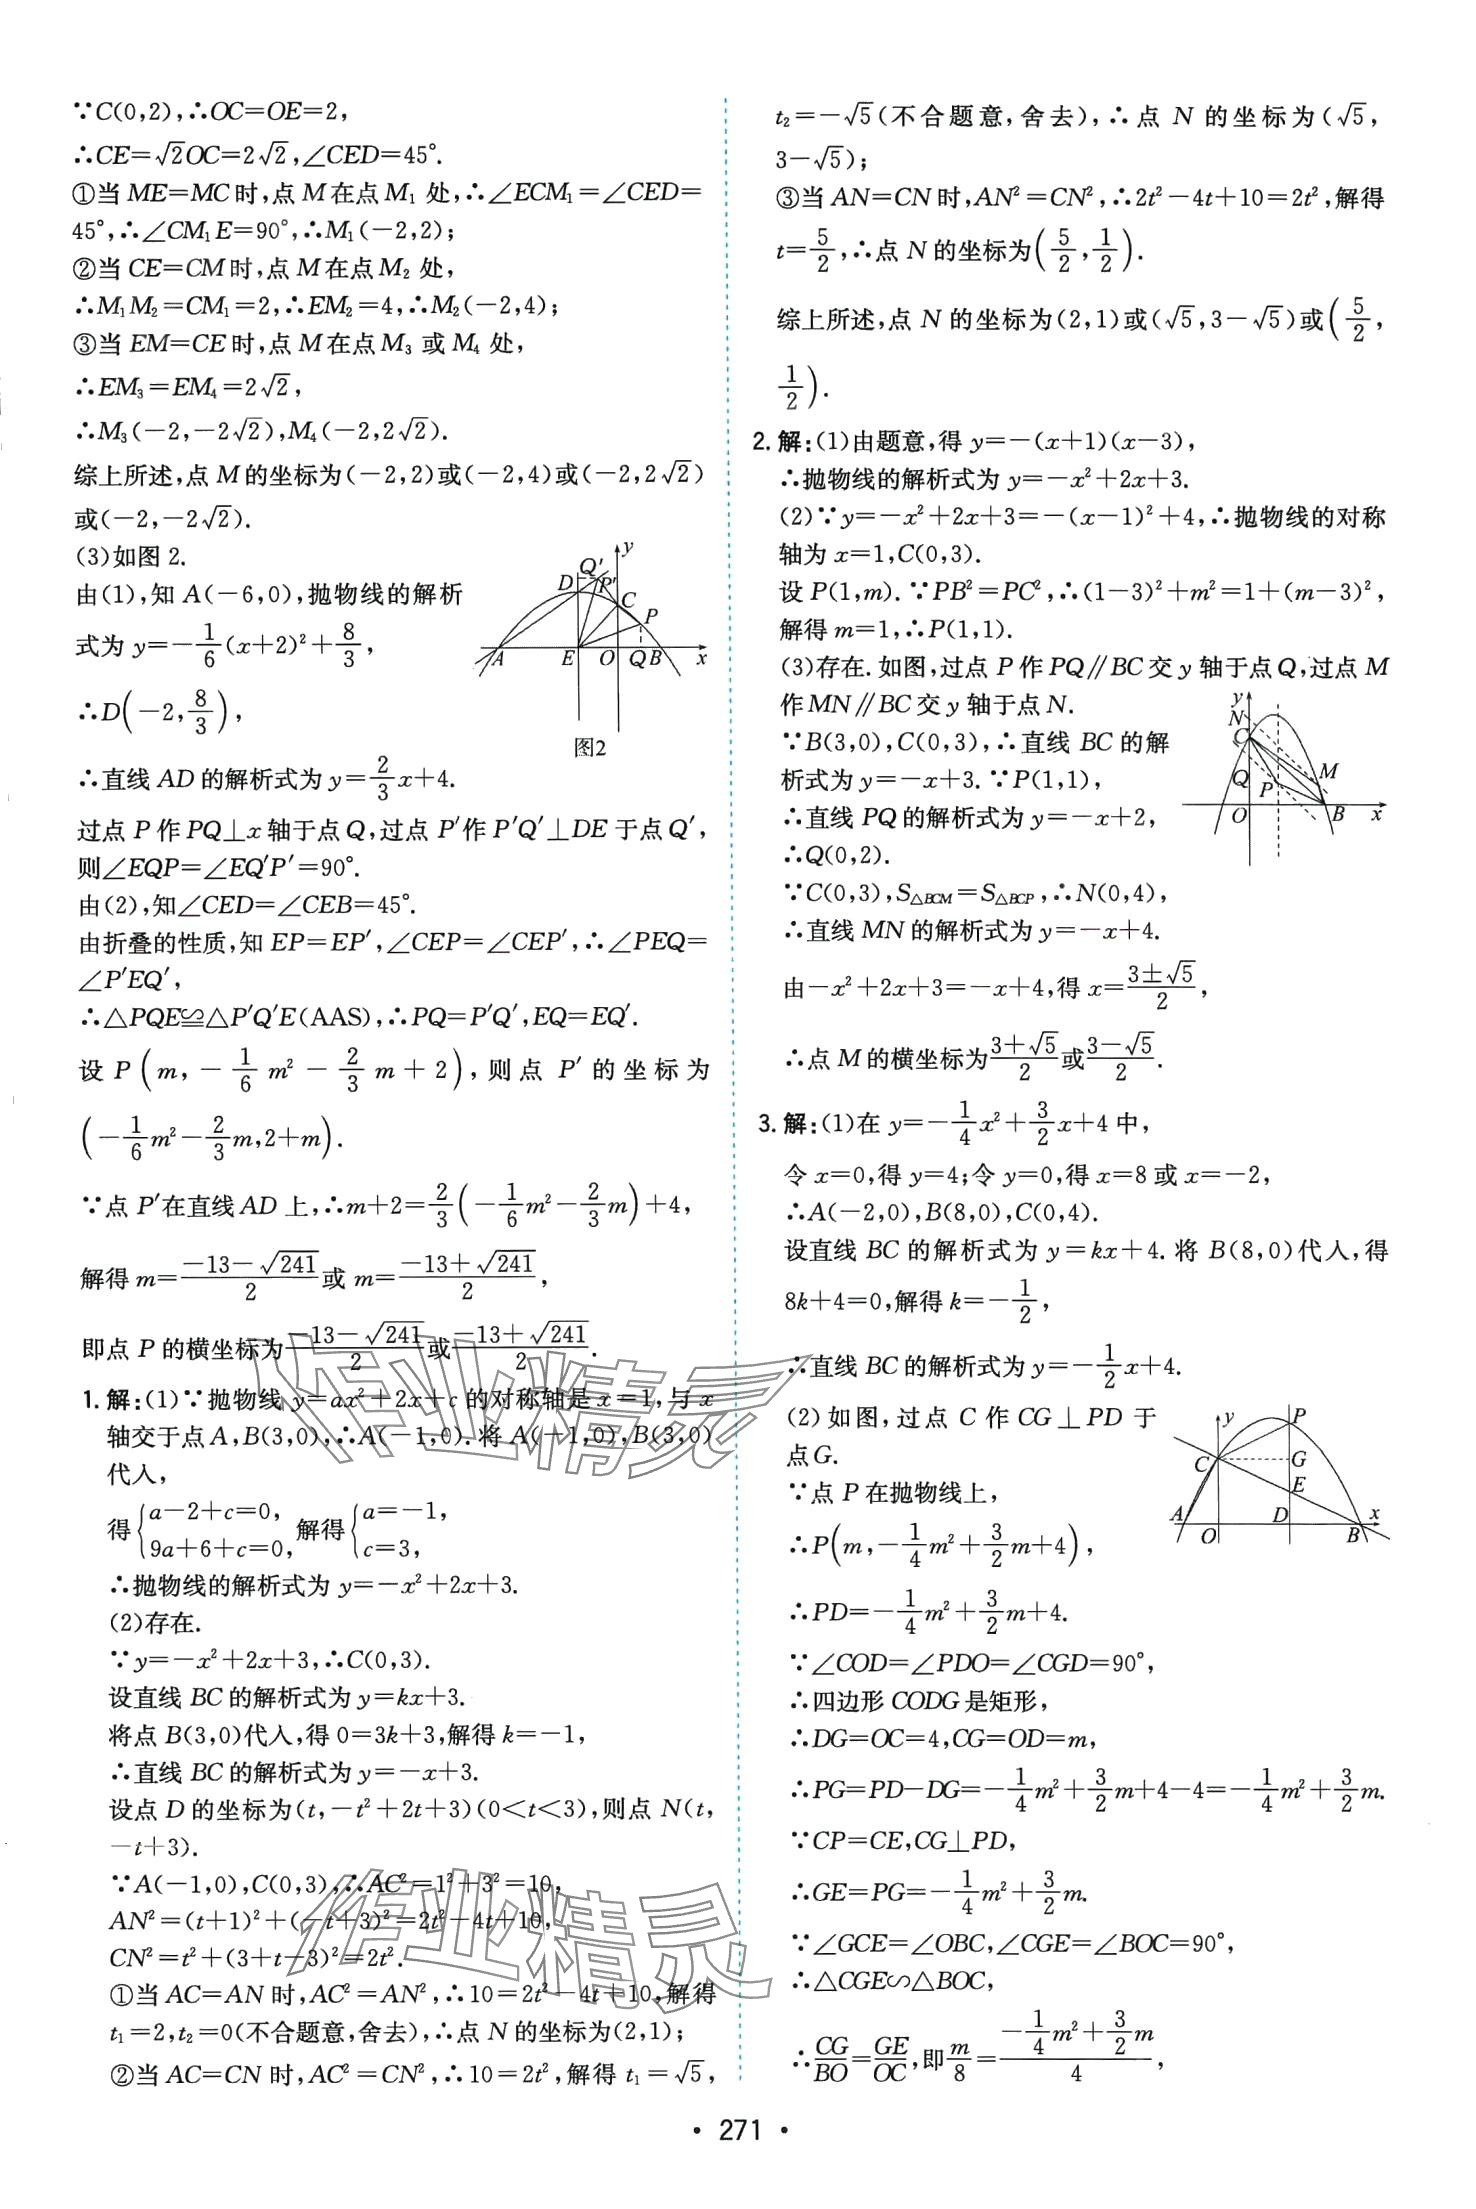 ∵C(0,2),∴OC=OE=2,
∴CE=√2OC=2√2,∠CED=45°.
①当 ME=MC 时,点 M 在点 M₁ 处,∴∠ECM₁=∠CED=
45°,∴∠CM₁E=90°,∴M₁(-2,2);
②当 CE=CM 时,点 M 在点 M₂ 处,
∴M₁M₂=CM₁=2,∴EM₂=4,∴M₂(-2,4);
③当 EM=CE 时,点 M 在点 M₃ 或 M₄ 处,
∴EM₃=EM₄=2√2,
∴M₃(-2,-2√2),M₄(-2,2√2).
综上所述,点 M 的坐标为(-2,2)或(-2,4)或(-2,2√2)
或(-2,-2√2).
(3)如图 2.
由(1),知 A(-6,0),抛物线的解析
式为 y=-1/6(x+2)²+8/3,
∴D(-2,8/3),
D Q′ P′ y C P
A E O Q B x
图2
∴直线 AD 的解析式为 y=2/3x+4.
过点 P 作 PQ⊥x 轴于点 Q,过点 P′作 P′Q′⊥DE 于点 Q′,
则∠EQP=∠EQ′P′=90°.
由(2),知∠CED=∠CEB=45°.
由折叠的性质,知 EP=EP′,∠CEP=∠CEP′,∴∠PEQ=
∠P′EQ′,
∴△PQE≌△P′Q′E(AAS),∴PQ=P′Q′,EQ=EQ′.
设 P(m,-1/6m²-2/3m+2),则点 P′ 的坐标为
(-1/6m²-2/3m,2+m).
∵点 P′在直线 AD 上,∴m+2=2/3(-1/6m²-2/3m)+4,
解得 m=(-13-√241)/2或 m=(-13+√241)/2,
即点 P 的横坐标为(-13-√241)/2或(-13+√241)/2.
1. 解:(1)∵抛物线 y=ax²+2x+c 的对称轴是 x=1,与 x
轴交于点 A,B(3,0),∴A(-1,0).将 A(-1,0),B(3,0)
代入,
得{a-2+c=0, 9a+6+c=0, 解得{a=-1, c=3,
∴抛物线的解析式为 y=-x²+2x+3.
(2)存在.
∵y=-x²+2x+3,∴C(0,3).
设直线 BC 的解析式为 y=kx+3.
将点 B(3,0)代入,得 0=3k+3,解得 k=-1,
∴直线 BC 的解析式为 y=-x+3.
设点 D 的坐标为(t,-t²+2t+3)(0<t<3),则点 N(t,
-t+3).
∵A(-1,0),C(0,3),∴AC²=1²+3²=10,
AN²=(t+1)²+(-t+3)²=2t²-4t+10,
CN²=t²+(3+t-3)²=2t².
①当 AC=AN 时,AC²=AN²,∴10=2t²-4t+10,解得
t₁=2,t₂=0(不合题意,舍去),∴点 N 的坐标为(2,1);
②当 AC=CN 时,AC²=CN²,∴10=2t²,解得 t₁=√5,
t₂=-√5(不合题意,舍去),∴点 N 的坐标为(√5,
3-√5);
③当 AN=CN 时,AN²=CN²,∴2t²-4t+10=2t²,解得
t=5/2,∴点 N 的坐标为(5/2,1/2).
综上所述,点 N 的坐标为(2,1)或(√5,3-√5)或(5/2,
1/2).
2. 解:(1)由题意,得 y=-(x+1)(x-3),
∴抛物线的解析式为 y=-x²+2x+3.
(2)∵y=-x²+2x+3=-(x-1)²+4,∴抛物线的对称
轴为 x=1,C(0,3).
设 P(1,m).∵PB²=PC²,∴(1-3)²+m²=1+(m-3)²,
解得 m=1,∴P(1,1).
(3)存在.如图,过点 P 作 PQ∥BC 交 y 轴于点 Q,过点 M
作 MN∥BC 交 y 轴于点 N.
∵B(3,0),C(0,3),∴直线 BC 的解
析式为 y=-x+3.∵P(1,1),
∴直线 PQ 的解析式为 y=-x+2,
∴Q(0,2).
y N C Q P M
O B x
∵C(0,3),S△BCM=S△BCP,∴N(0,4),
∴直线 MN 的解析式为 y=-x+4.
由-x²+2x+3=-x+4,得 x=(3±√5)/2,
∴点 M 的横坐标为(3+√5)/2或(3-√5)/2.
3. 解:(1)在 y=-1/4x²+3/2x+4 中,
令 x=0,得 y=4;令 y=0,得 x=8 或 x=-2,
∴A(-2,0),B(8,0),C(0,4).
设直线 BC 的解析式为 y=kx+4.将 B(8,0)代入,得
8k+4=0,解得 k=-1/2,
∴直线 BC 的解析式为 y=-1/2x+4.
(2)如图,过点 C 作 CG⊥PD 于
点G.
∵点 P 在抛物线上,
∴P(m,-1/4m²+3/2m+4),
y P C G E
A O D B x
∴PD=-1/4m²+3/2m+4.
∵∠COD=∠PDO=∠CGD=90°,
∴四边形 CODG 是矩形,
∴DG=OC=4,CG=OD=m,
∴PG=PD-DG=-1/4m²+3/2m+4-4=-1/4m²+3/2m.
∵CP=CE,CG⊥PD,
∴GE=PG=-1/4m²+3/2m.
∵∠GCE=∠OBC,∠CGE=∠BOC=90°,
∴△CGE∽△BOC,
∴CG/BO=GE/OC,即m/8=(-1/4m²+3/2m)/4,
作业精灵
作业精灵
· 271 ·